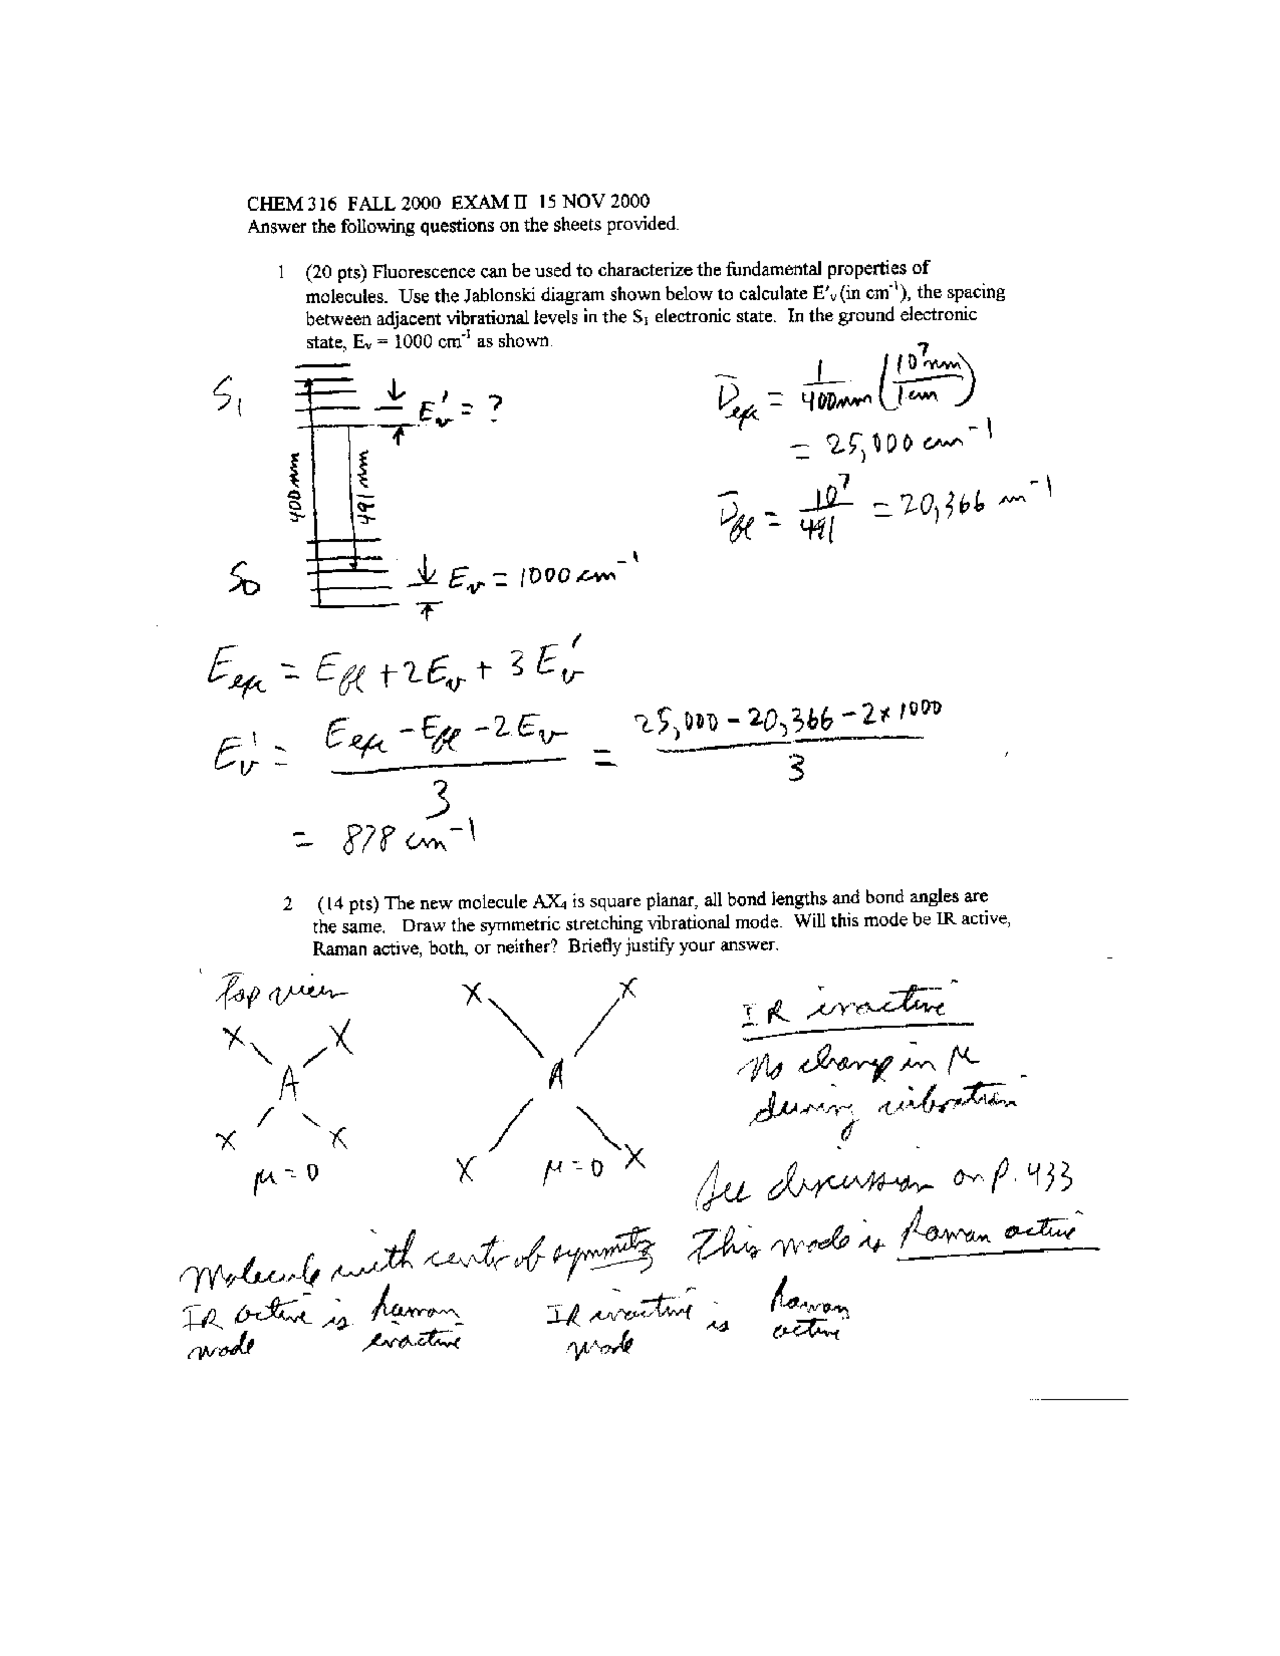 CHEM 316 FALL 2000 EXAM II 15 NOV 2000
Answer the following questions on the sheets provided.
1 (20 pts) Fluorescence can be used to characterize the fundamental properties of
molecules. Use the Jablonski diagram shown below to calculate E'ᵥ (in cm⁻¹), the spacing
between adjacent vibrational levels in the S₁ electronic state. In the ground electronic
state, Eᵥ = 1000 cm⁻¹ as shown.
S₁
Eᵥ' = ?
400 nm
491 nm
S₀
Eᵥ = 1000 cm⁻¹
ν̄ₑₓ = 1/400nm (10⁷nm/1cm)
= 25,000 cm⁻¹
ν̄fl = 10⁷/491 = 20,366 cm⁻¹
Eₑₓ = Efl + 2Eᵥ + 3Eᵥ'
Eᵥ' = (Eₑₓ - Efl - 2Eᵥ)/3 = (25,000 - 20,366 - 2x1000)/3
= 878 cm⁻¹
2 (14 pts) The new molecule AX₄ is square planar, all bond lengths and bond angles are
the same. Draw the symmetric stretching vibrational mode. Will this mode be IR active,
Raman active, both, or neither? Briefly justify your answer.
Top view
X X
A
X X
μ = 0
X X
A
X X
μ = 0
IR inactive
No change in μ
during vibration
See discussion on p. 433
This mode is Raman active
Molecule with center of symmetry
IR active is Raman
mode inactive
IR inactive is Raman
mode active